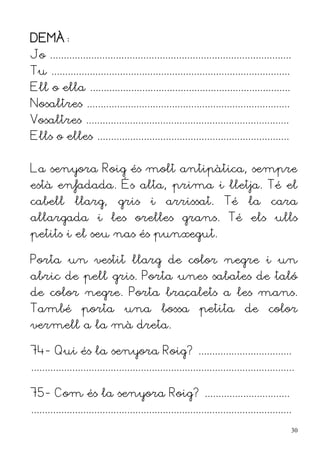 DEMÀ :
Jo ........................................................................................
Tu .......................................................................................
Ell o ella .........................................................................
Nosaltres ..........................................................................
Vosaltres ..........................................................................
Ells o elles ......................................................................
La senyora Roig és molt antipàtica, sempre
està enfadada. És alta, prima i lletja. Té el
cabell llarg, gris i arrissat. Té la cara
allargada i les orelles grans. Té els ulls
petits i el seu nas és punxegut.
Porta un vestit llarg de color negre i un
abric de pell gris. Porta unes sabates de taló
de color negre. Porta braçalets a les mans.
També porta una bossa petita de color
vermell a la mà dreta.
74- Qui és la senyora Roig? ..................................
................................................................................................
75- Com és la senyora Roig? ...............................
...............................................................................................
30